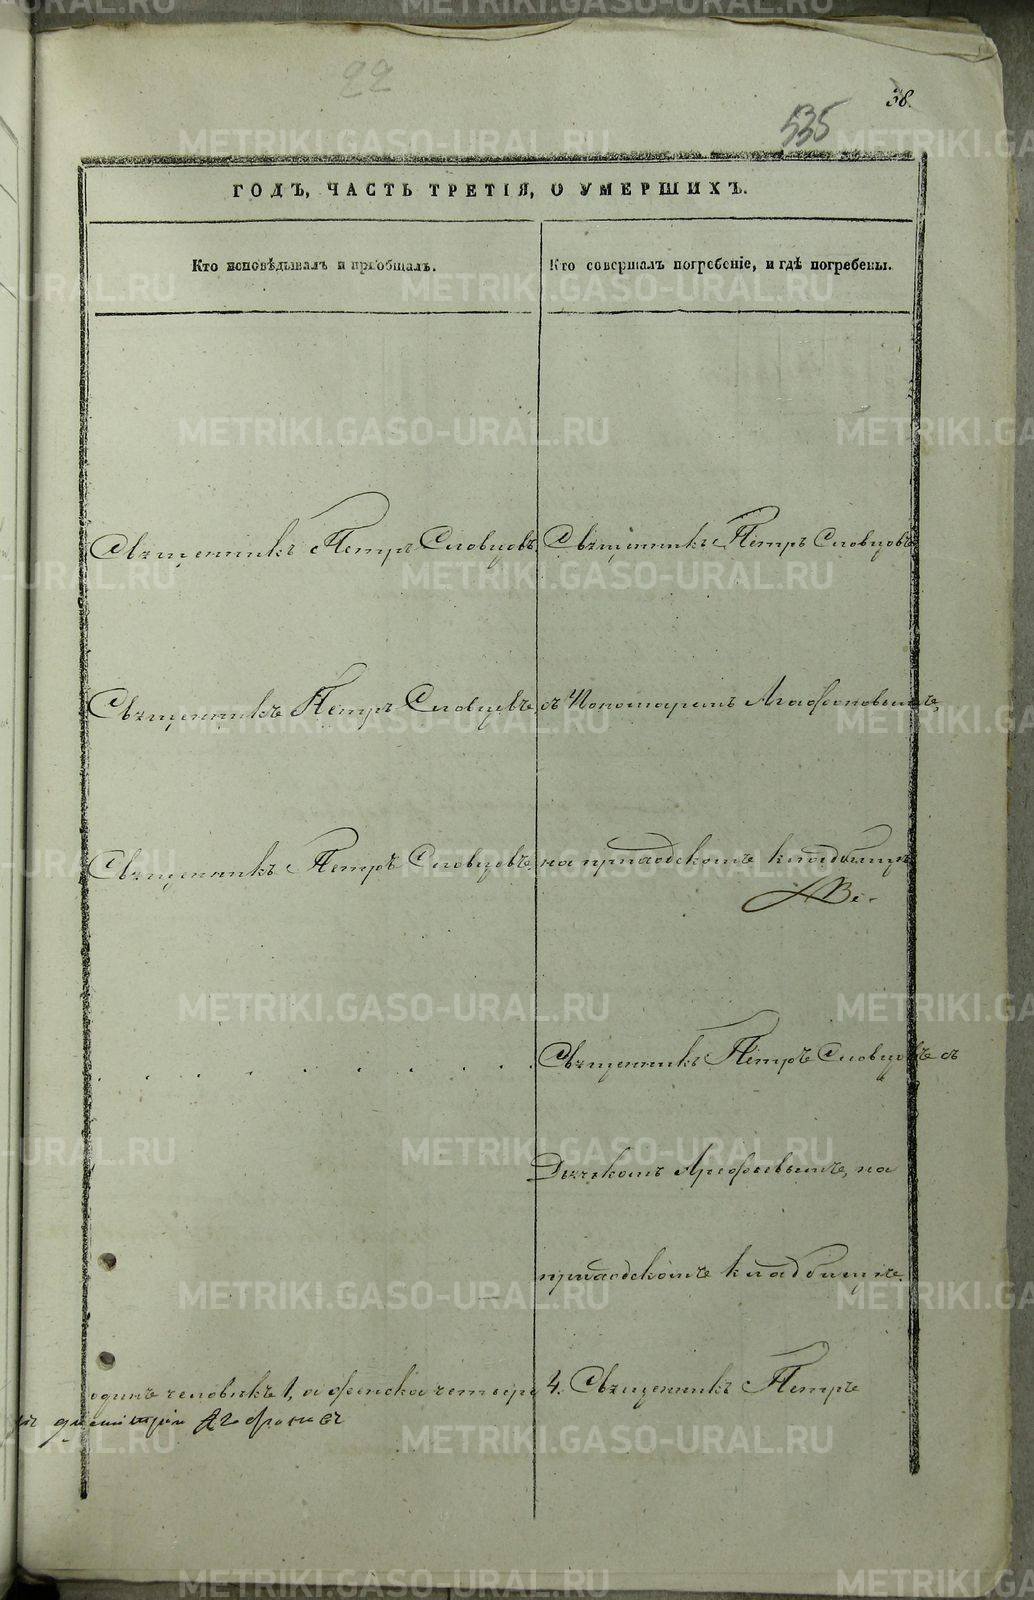 22
38.
535
ГОДЪ, ЧАСТЬ ТРЕТІЯ, О УМЕРШИХЪ.
Кто исповѣдывалъ и пріобщалъ.
Кто совершалъ погребеніе, и гдѣ погребены.
Священникъ Петръ Словцовъ,
Священникъ Петръ Словцовъ
Священникъ Петръ Словцовъ,
съ Пономаремъ Агафоновымъ,
Священникъ Петръ Словцовъ,
на приходскомъ кладбищѣ
Священникъ Петръ Словцовъ съ
Дьячкомъ Арефьевымъ, на
приходскомъ кладбищѣ.
одинъ человѣкъ 1, а женска четыре 4. Священникъ Петръ
METRIKI.GASO-URAL.RU